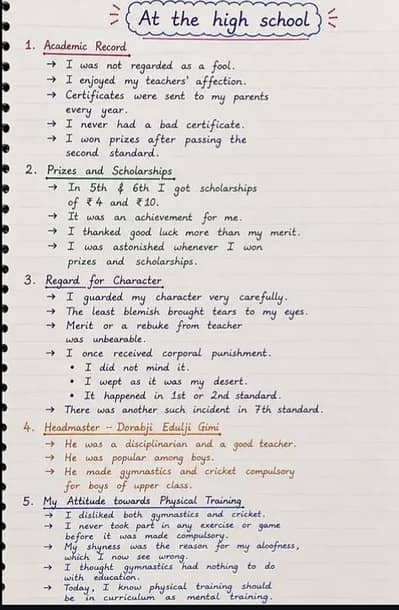 At the high school
1. Academic Record
→ I was not regarded as a fool.
→ I enjoyed my teachers' affection.
→ Certificates were sent to my parents
every year.
→ I never had a bad certificate.
→ I won prizes after passing the
second standard.
2. Prizes and Scholarships
→ In 5th & 6th I got scholarships
of ₹ 4 and ₹ 10.
→ It was an achievement for me.
→ I thanked good luck more than my merit.
→ I was astonished whenever I won
prizes and scholarships.
3. Regard for Character
→ I guarded my character very carefully.
→ The least blemish brought tears to my eyes.
→ Merit or a rebuke from teacher
was unbearable.
→ I once received corporal punishment.
• I did not mind it.
• I wept as it was my desert.
• It happened in 1st or 2nd standard.
→ There was another such incident in 7th standard.
4. Headmaster – Dorabji Edulji Gimi
→ He was a disciplinarian and a good teacher.
→ He was popular among boys.
→ He made gymnastics and cricket compulsory
for boys of upper class.
5. My Attitude towards Physical Training
→ I disliked both gymnastics and cricket.
→ I never took part in any exercise or game
before it was made compulsory.
→ My shyness was the reason for my aloofness,
which I now see wrong.
→ I thought gymnastics had nothing to do
with education.
→ Today, I know physical training should
be in curriculum as mental training.